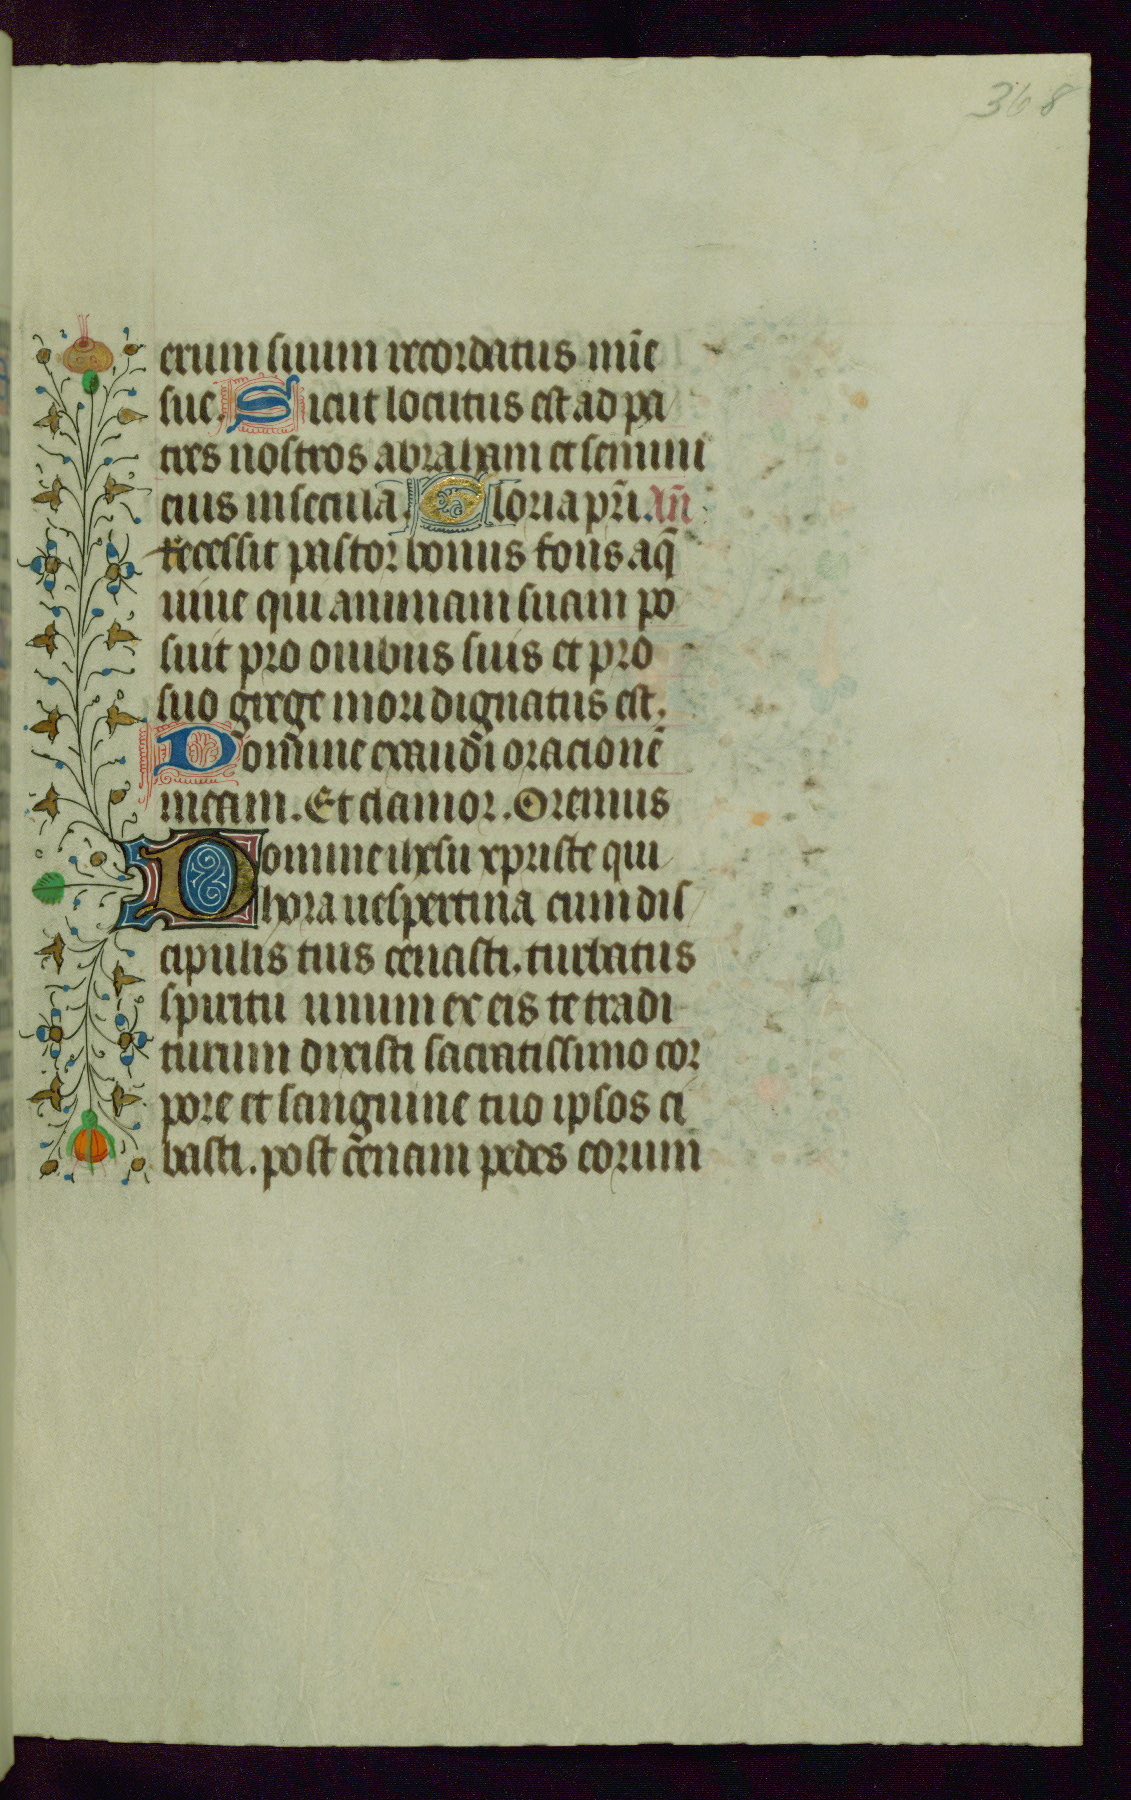 368
erum suum recordatus mīe
sue. Sicut locutus est ad pa
tres nostros abraham et semini
eius in secula. Gloria pr̄i. Añ
Recessit pastor bonus fons aq̄
uiue qui animam suam po
suit pro ouibus suis et pro
suo grege mori dignatus est.
Domine exaudi oracionē
meam. Et clamor. Oremus
Domine ihesu xpriste qui
hora uespertina cum dis
cipulis tuis cenasti. turbatus
spiritu unum ex eis te tradi
turum dixisti sacratissimo cor
pore et sanguine tuo ipsos ci
basti. post cenam pedes eorum